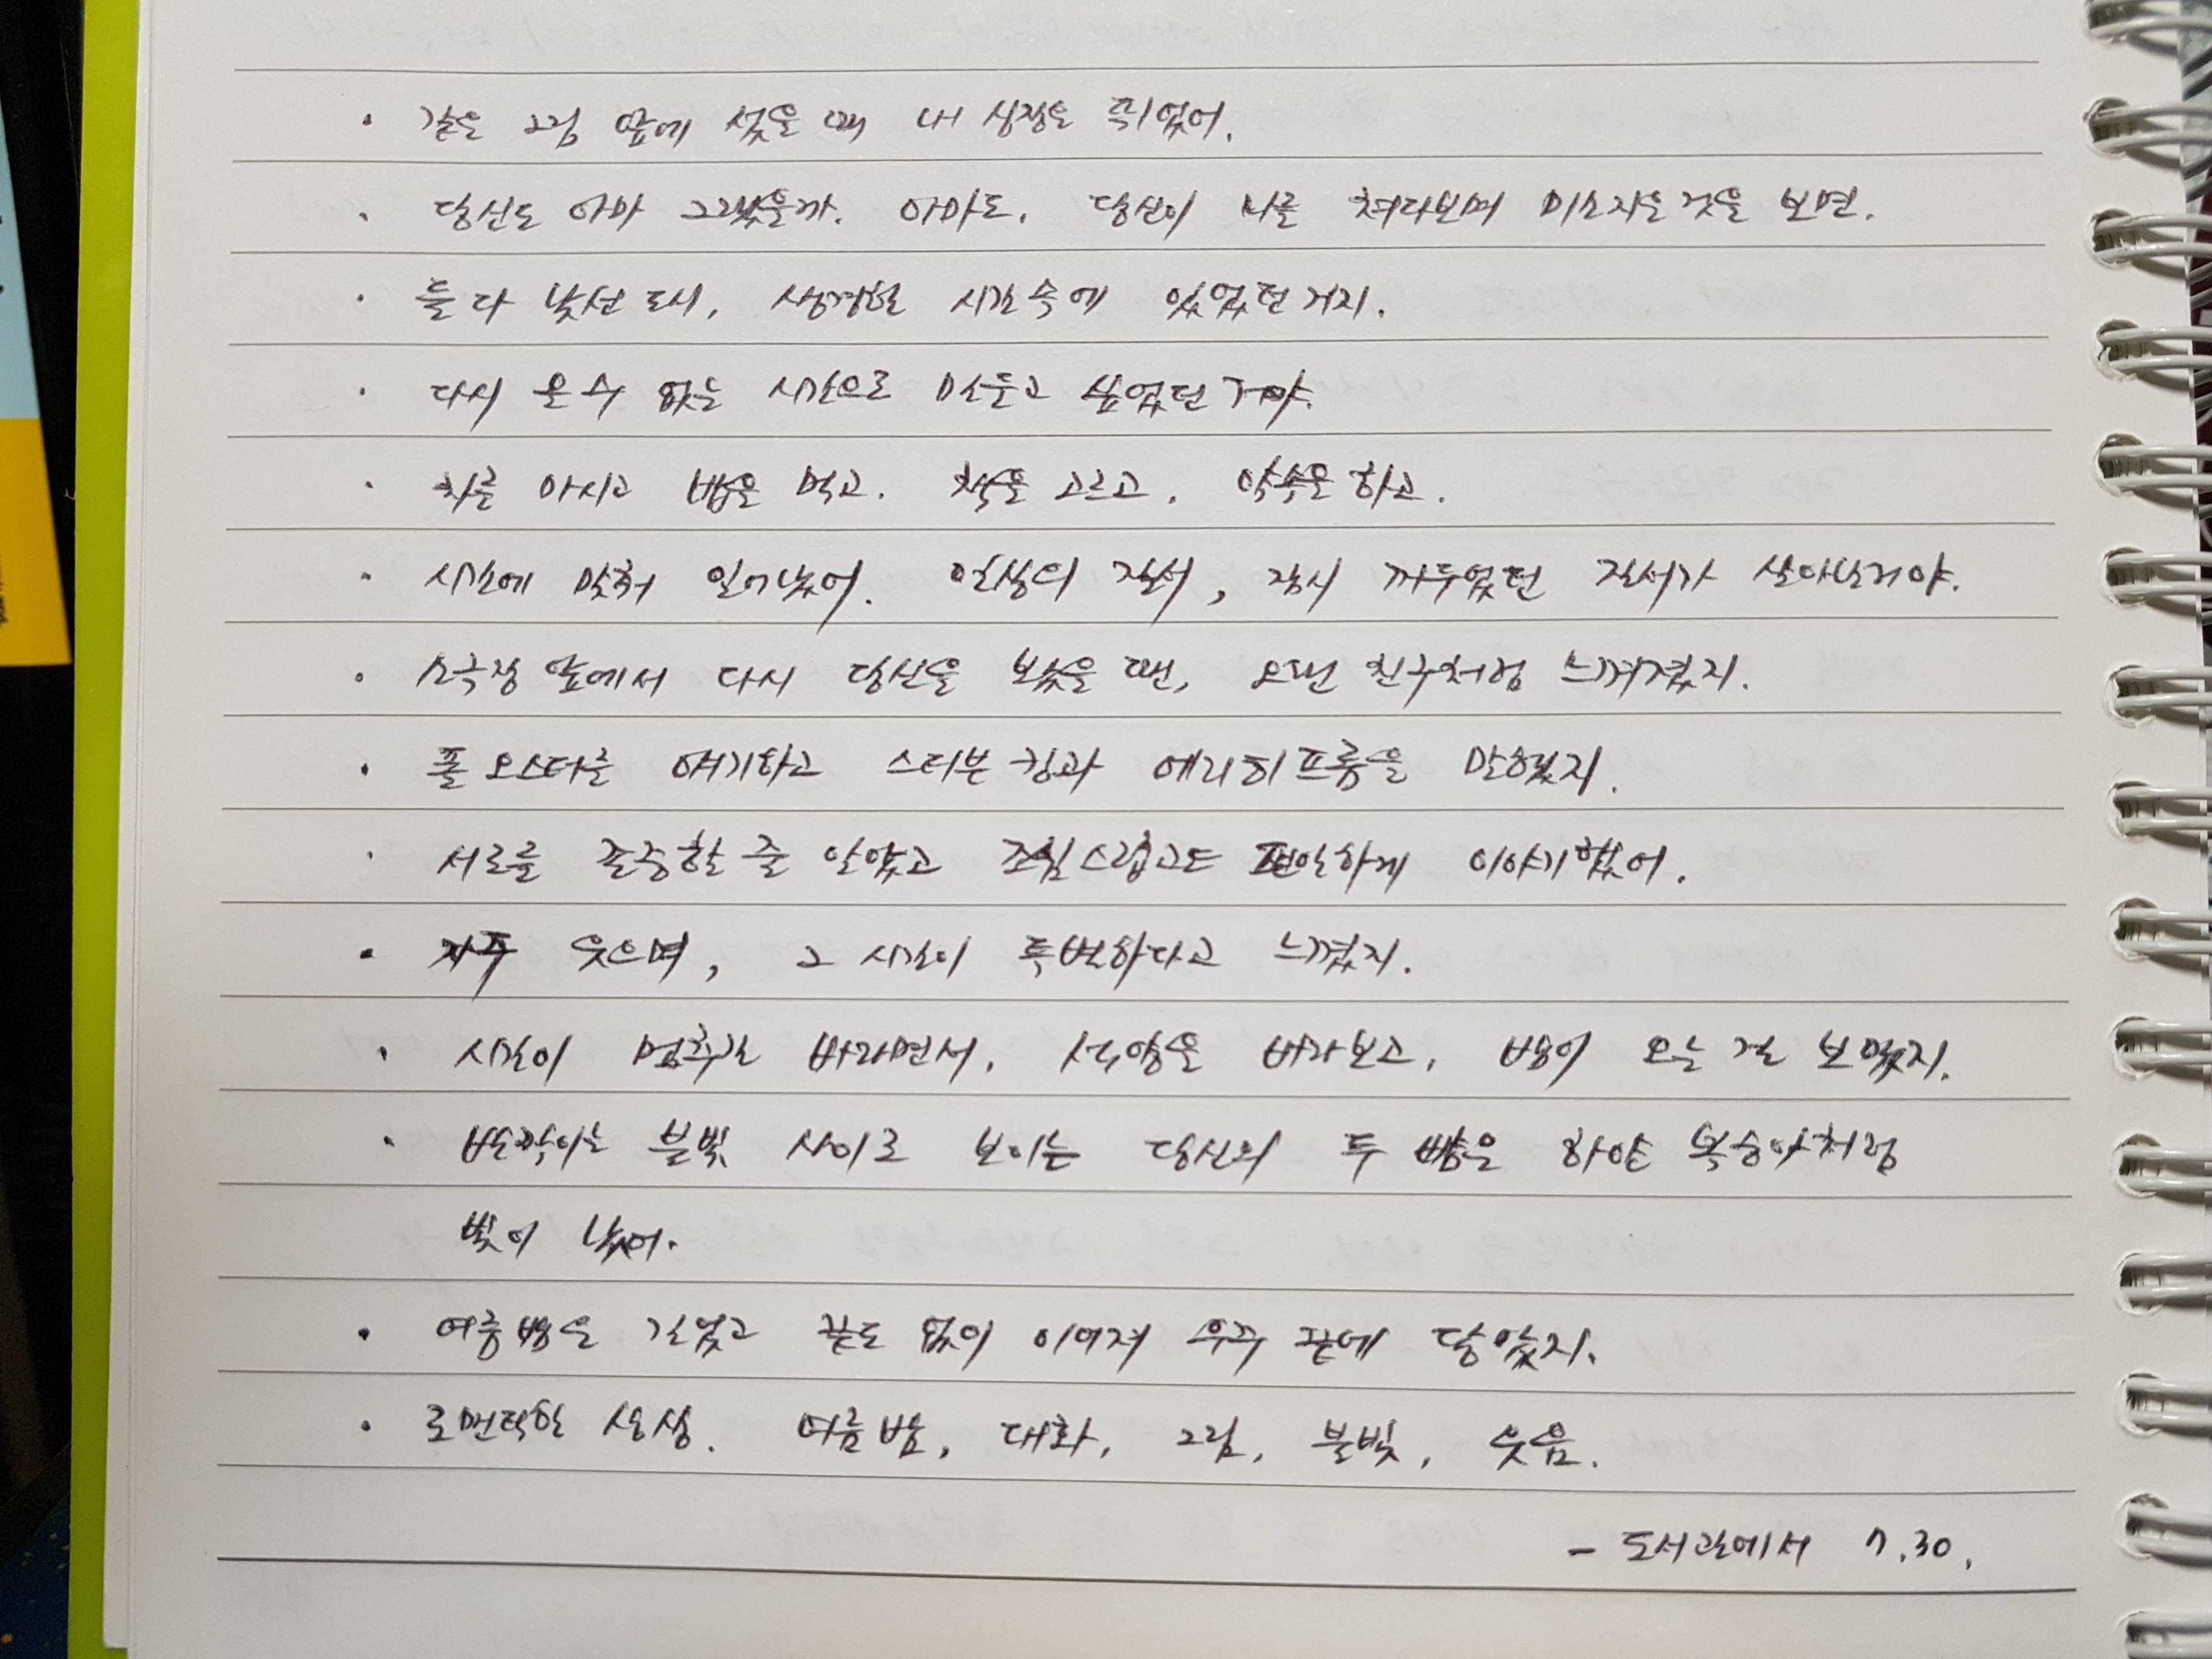 · 같은 그림 앞에 섰을 때 내 심장은 뛰었어.
· 당신도 아마 그랬을까. 아마도. 당신이 나를 쳐다보며 미소지은 것을 보면.
· 둘 다 낯선 도시, 생경한 시간 속에 있었던 거지.
· 다시 올 수 없는 시간으로 만들고 싶었던 거야.
· 차를 마시고 밥을 먹고. 책을 고르고, 약속을 하고.
· 시간에 맞춰 일어났어. 일상의 질서, 잠시 꺼두었던 질서가 살아난거야.
· 소극장 앞에서 다시 당신을 보았을 땐, 오랜 친구처럼 느껴졌지.
· 폴 오스터를 얘기하고 스티븐 킹과 에리히 프롬을 말했지.
· 서로를 존중할 줄 알았고 조심스럽고도 편안하게 이야기했어.
· 자주 웃으며, 그 시간이 특별하다고 느꼈지.
· 시간이 멈추길 바라면서, 석양을 바라보고, 밤이 오는 걸 보았지.
· 반짝이는 불빛 사이로 보이는 당신의 두 뺨은 하얀 복숭아처럼
빛이 났어.
· 여름밤은 길었고 끝도 없이 이어져 우주 끝에 닿았지.
· 로맨틱한 상상. 여름밤, 대화, 그림, 불빛, 웃음.
- 도서관에서 7.30.